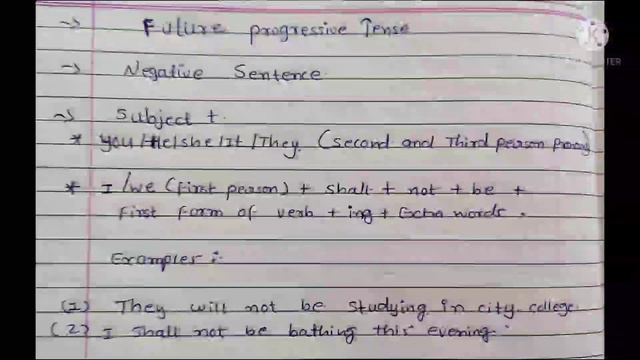 → Future progressive Tense
→ Negative Sentence
→ Subject +
* You/He/she/It/They (second and Third person
* I/we (first person) + shall + not + be +
first form of verb + ing + Extra words.
Examples :
(1) They will not be studying in city college
(2) I shall not be bathing this evening.
K